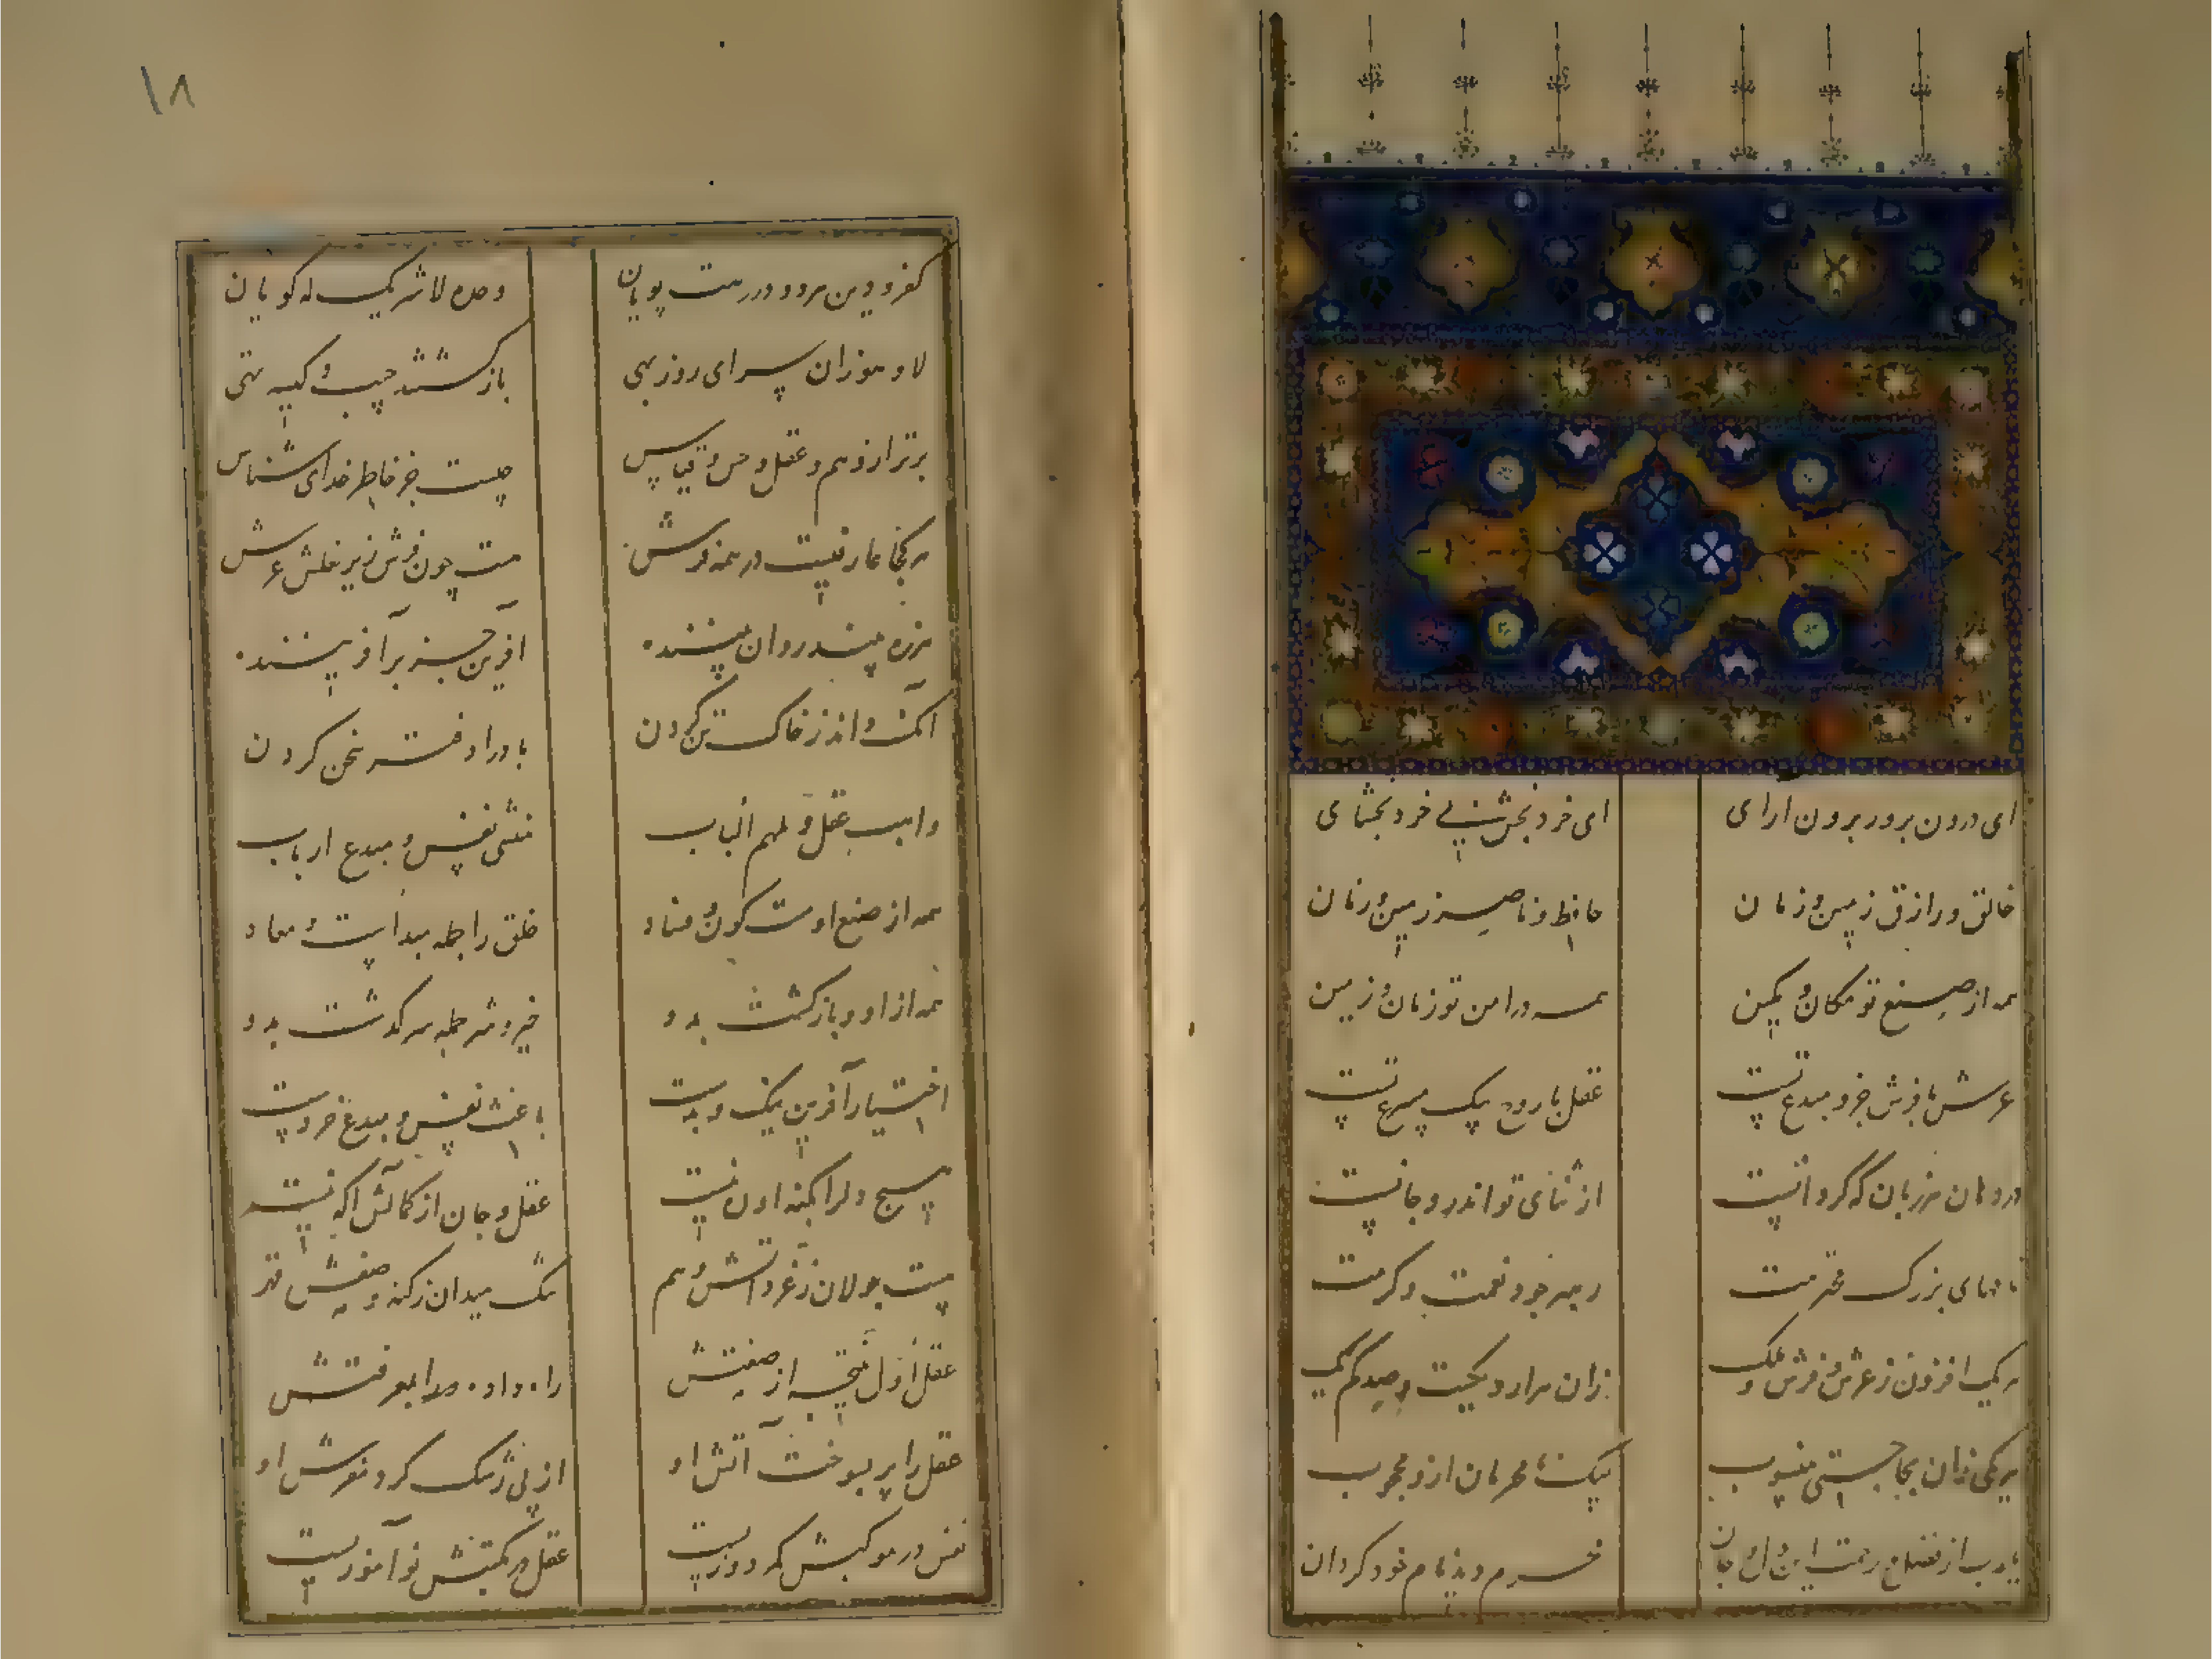 ای درون پرور برون ارای ای خرد بخش بی خرد بخشای
خالق و رازق زمین و زمان حافظ و ناصر زمین و زمان
همه از صنع تو مکان و مکین همه در امن تو زمان و زمین
عرش تا فرش جزو مبدع تست عقل با روح پیک مسرع تست
در دهان هر زبان که گردانست از ثنای تو اندرو جانست
نامهای بزرگ محترمت رهبر جود و نعمت و کرمت
هر یک افزون ز عرش و فرش و ملک زان هزار و یکست و صد کم یک
هر یکی زان بحاجتی منسوب لیک نامحرمان ازو محجوب
یارب از فضل و رحمت این دل و جان محرم دید نام خود گردان
۱۸
کفر و دین هر دو در رهت پویان وحده لا شریک له گویان
لا و هو زان سرای روزبهی بازگشتند جیب و کیسه تهی
برتر از وهم و عقل و حس و قیاس چیست جز خاطر خدای شناس
هر کجا عارفیست در همه فرش هست چون فرش زیر نعلش عرش
هرزه بیند روان بیننده آفرین جز بر آفریننده
آنک داند ز خاک تن کردن باد را دفتر سخن کردن
واهب عقل و ملهم الباب منشی نفس و مبدع ارباب
همه از صنع اوست کون و فساد خلق را جمله مبداست و معاد
همه از او و بازگشت بدو خیر و شر جمله سرگذشت بدو
اختیار آفرین نیک و بدست باعث نفس و مبدع خردست
هیچ دل را بکنه او ره نیست عقل و جان از کمالش آگه نیست
سست جولان ز عز ذاتش وهم تنگ میدان ز کنه وصفش فهم
عقل اول نتیجه از صفتش راه داده ورا بمعرفتش
عقل را پر بسوخت آتش او از پی رشک کرد مفرش او
نفس در موکبش ره دوزیست عقل در مکتبش نوآموزیست